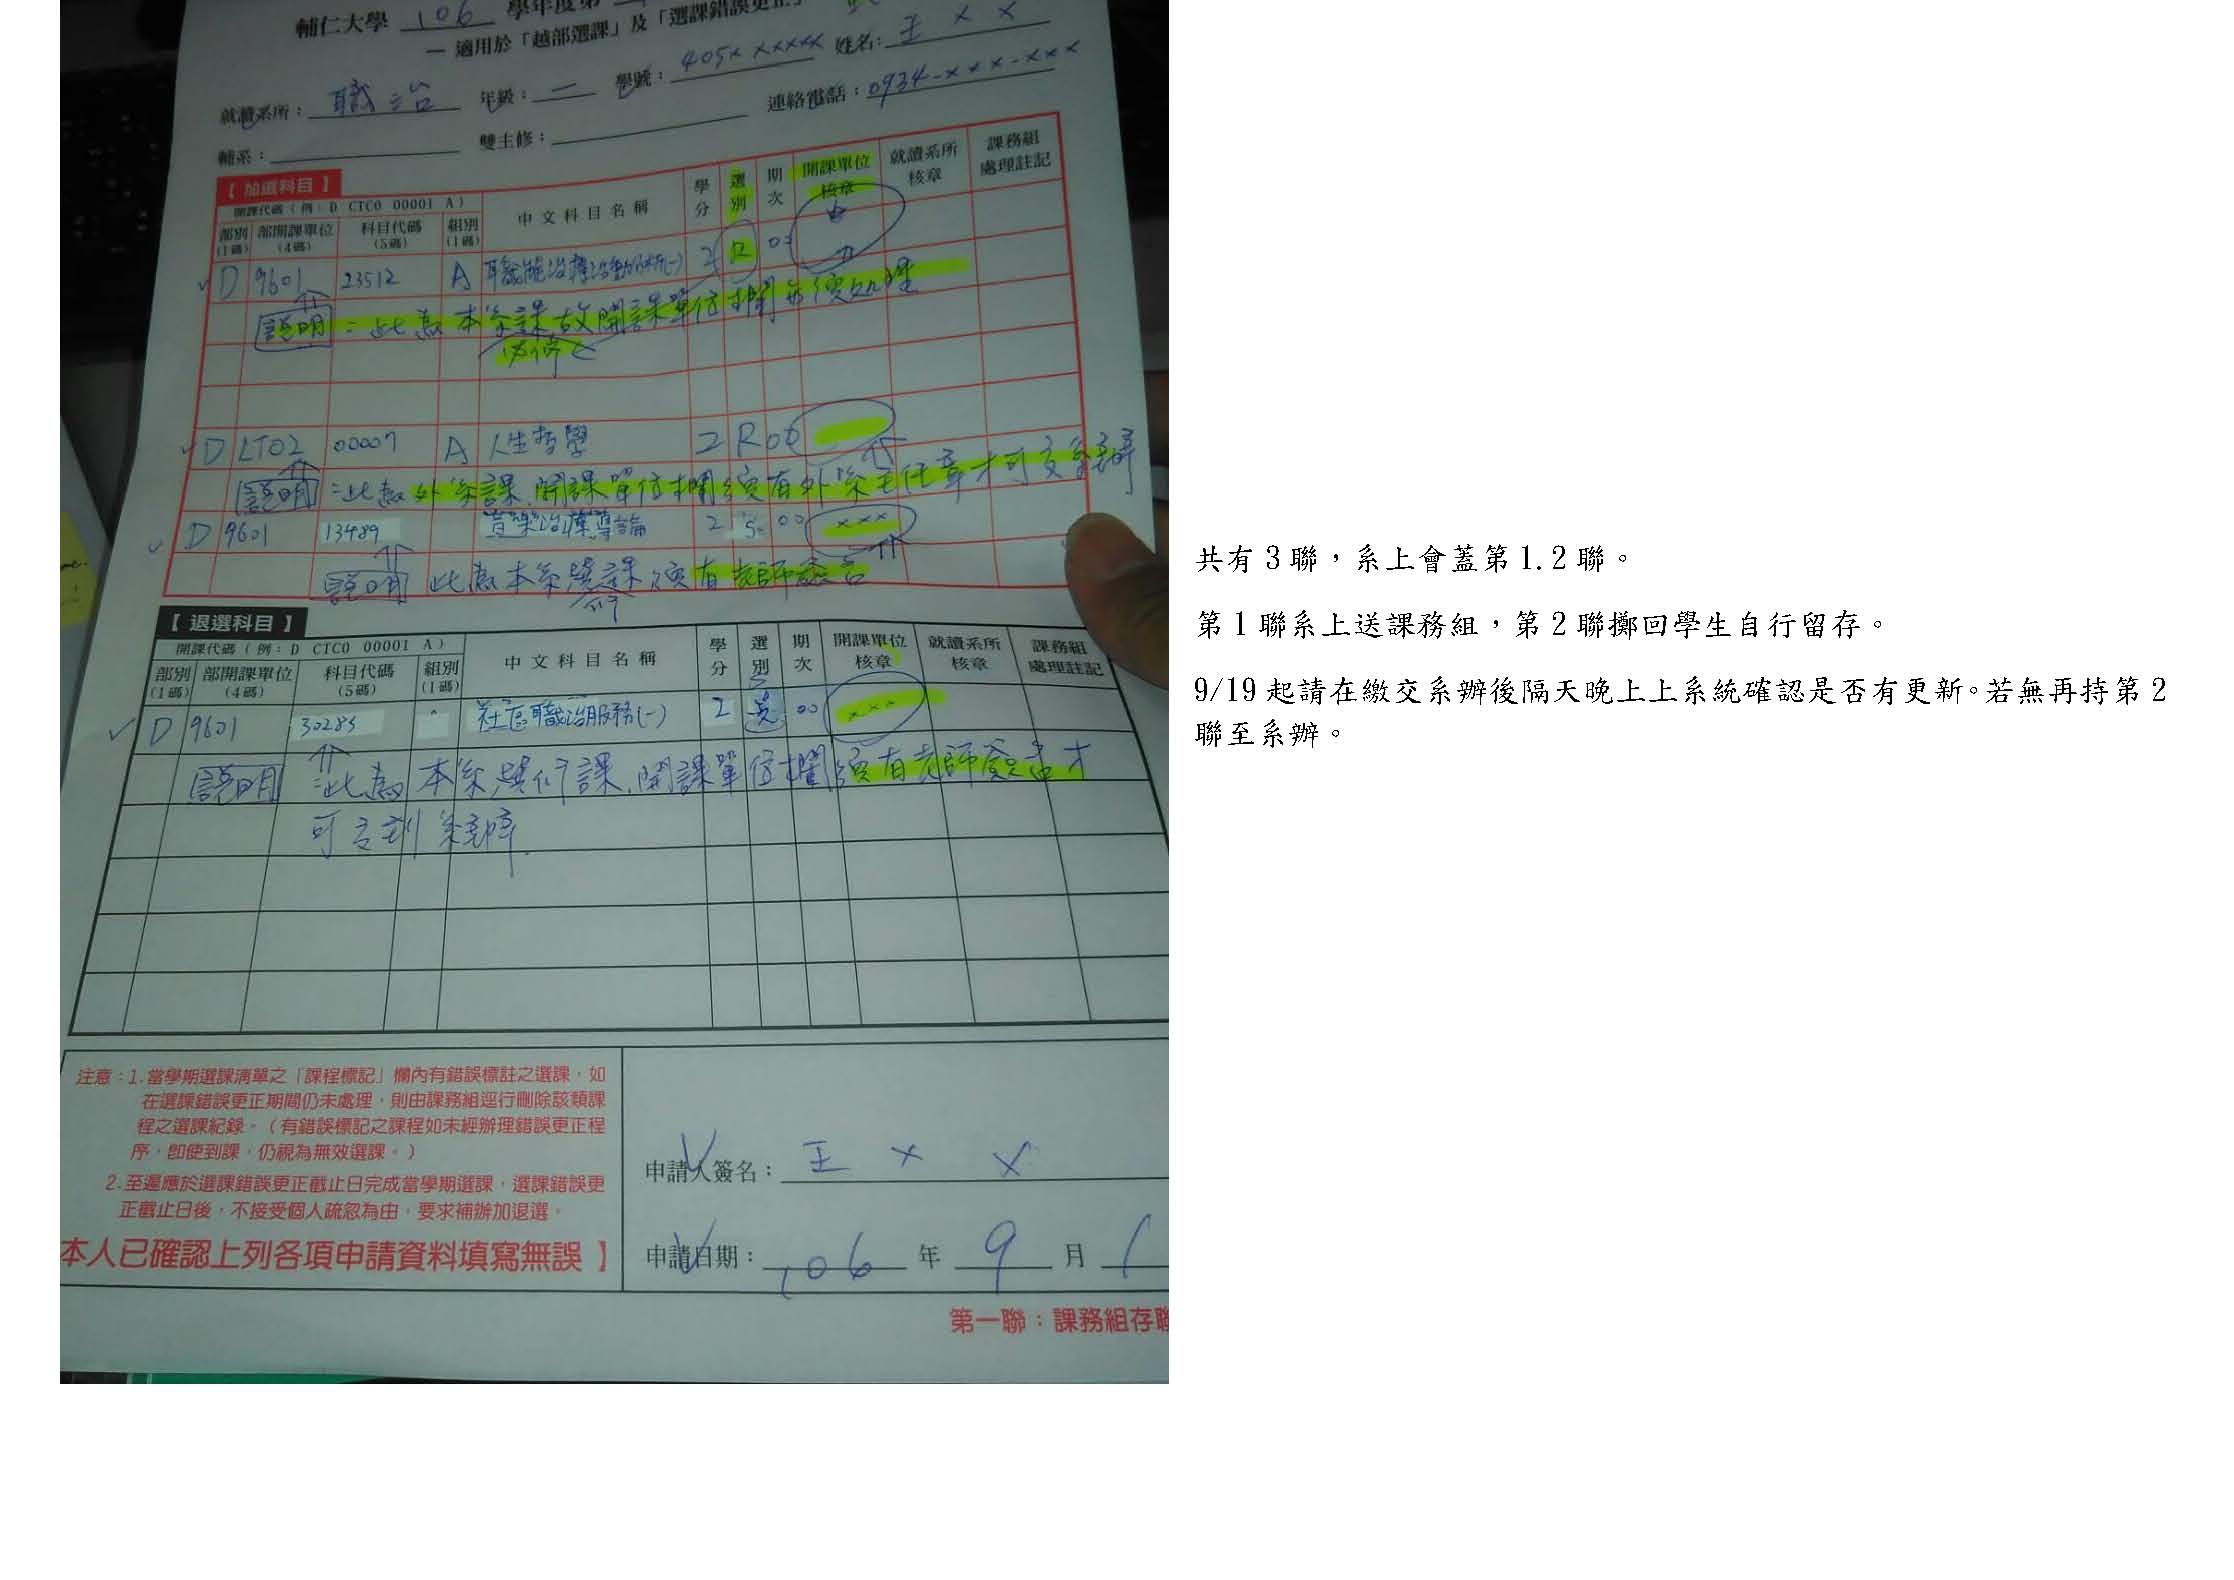 輔仁大學 106 學年度第
— 適用於「越部選課」及「選課錯誤更正」
就讀系所：職治 年級：二 學號：405x xxxxx 姓名：王 x x
輔系： 雙主修： 連絡電話：0934-xxx-xxx
【加選科目】
開課代碼（例：D CTC0 00001 A）
部別(1碼) 部開課單位(4碼) 科目代碼(5碼) 組別(1碼) 中文科目名稱 學分 選別 期次 開課單位核章 就讀系所核章 課務組處理註記
D 9601 23512 A 2 0
說明：此為本系課故開課單位欄無須處理
必修
D LT02 00007 A 人生哲學 2 R 00
說明：此為外系課,開課單位欄須有外系主任章才可交系辦
D 9601 13489 音樂治療導論 2 S 00 xxx
說明 此為本系選課須有老師簽名
修
【退選科目】
開課代碼（例：D CTC0 00001 A）
部別(1碼) 部開課單位(4碼) 科目代碼(5碼) 組別(1碼) 中文科目名稱 學分 選別 期次 開課單位核章 就讀系所核章 課務組處理註記
D 9601 30285 社區職治服務(一) 2 選 00 xxx
說明：此為本系選修課,開課單位欄須有老師簽章才
可送到系辦.
注意：1.當學期選課清單之「課程標記」欄內有錯誤標註之選課，如
在選課錯誤更正期間仍未處理，則由課務組逕行刪除該類課
程之選課紀錄。（有錯誤標記之課程如未經辦理錯誤更正程
序，即使到課，仍視為無效選課。）
2.至遲應於選課錯誤更正截止日完成當學期選課，選課錯誤更
正截止日後，不接受個人疏忽為由，要求補辦加退選。
本人已確認上列各項申請資料填寫無誤】
申請人簽名：王 x x
申請日期：106 年 9 月 1
第一聯：課務組存聯
共有3聯，系上會蓋第1.2聯。
第1聯系上送課務組，第2聯擲回學生自行留存。
9/19起請在繳交系辦後隔天晚上上系統確認是否有更新。若無再持第2
聯至系辦。